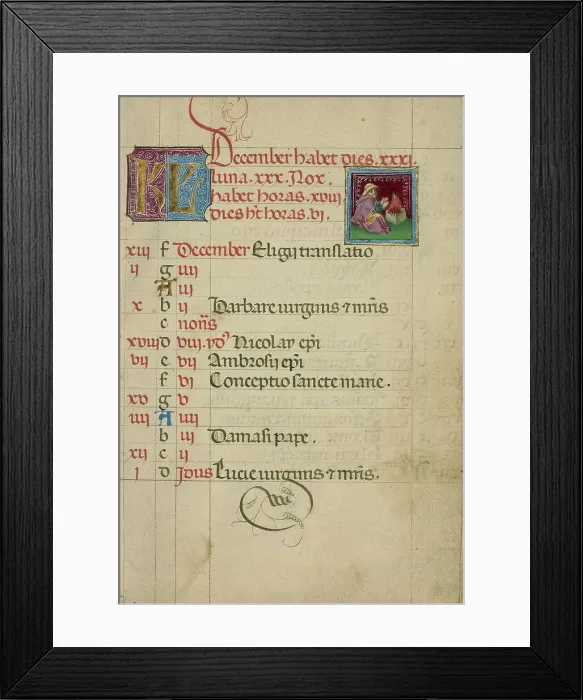 KL December habet dies .xxxi.
luna .xxx. Nox .
habet horas .xviii.
dies ht horas .vi.
xiii f December Eligii translatio
ii g iiii
A iii
x b ii Barbare uirginis ⁊ mris
c nonis
xviii d viii. yd9 Nicolay epi
vii e vii Ambrosii epi
f vi Conceptio sancte marie .
xv g v
iiii A iiii
b iii Damasi pape .
xii c ii
i d Jdus Lucie uirginis ⁊ mris.